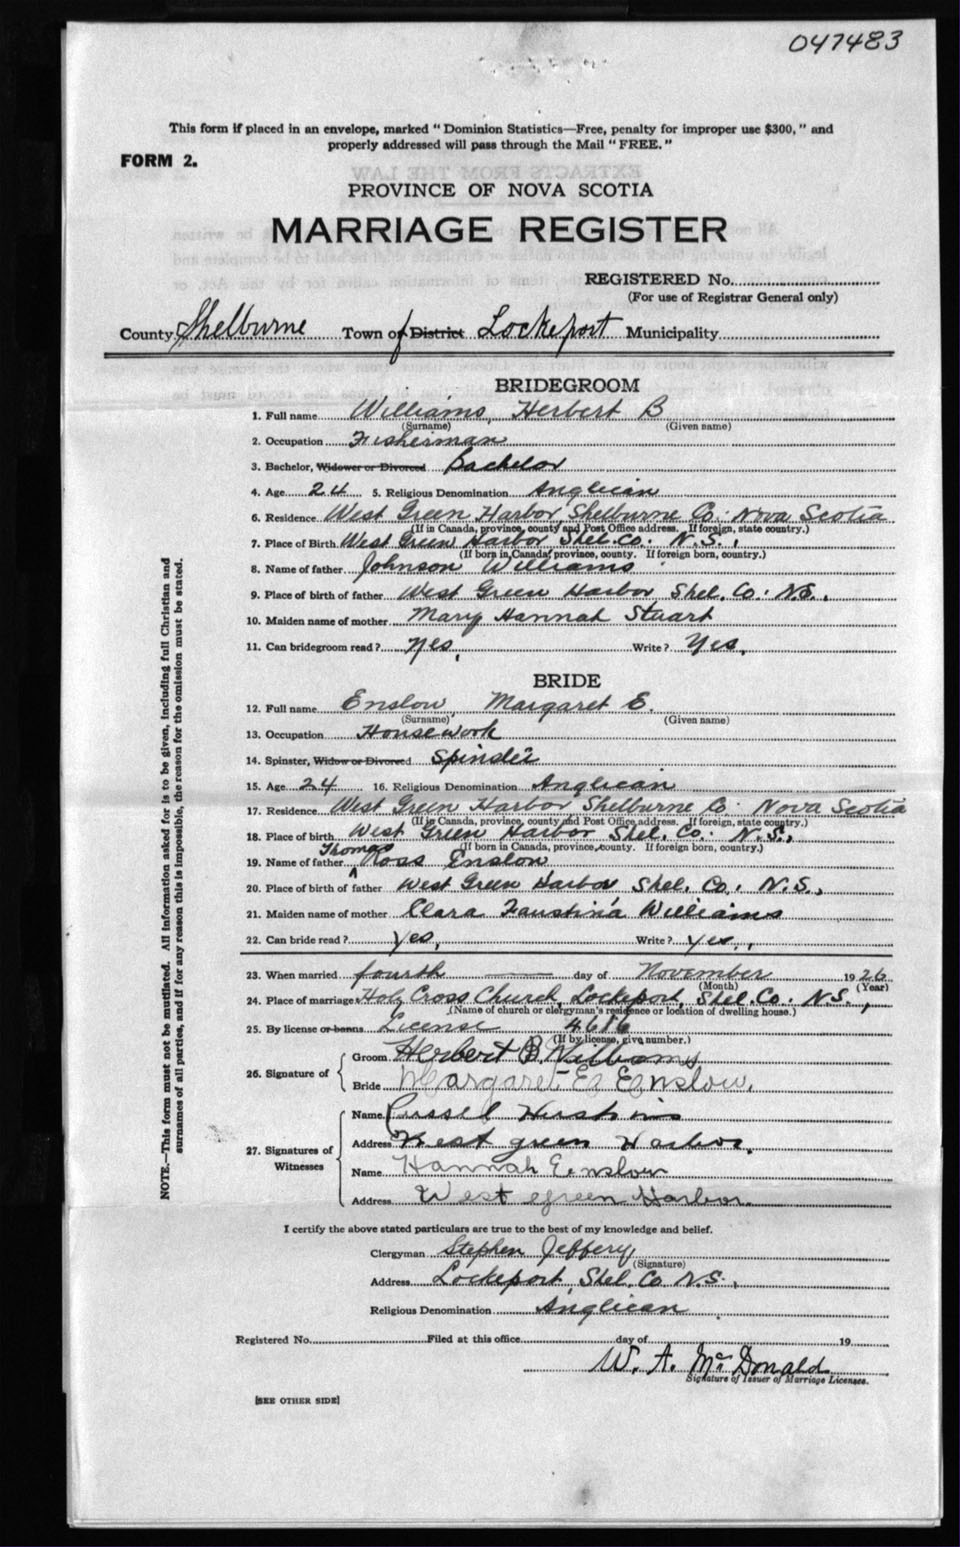 047483
This form if placed in an envelope, marked "Dominion Statistics—Free, penalty for improper use $300," and
properly addressed will pass through the Mail "FREE."
FORM 2.
PROVINCE OF NOVA SCOTIA
MARRIAGE REGISTER
REGISTERED No.
(For use of Registrar General only)
County Shelburne Town of District Lockeport Municipality
BRIDEGROOM
1. Full name Williams, Herbert B
(Surname) (Given name)
2. Occupation Fisherman
3. Bachelor, Widower or Divorced Bachelor
4. Age 24 5. Religious Denomination Anglican
6. Residence West Green Harbor Shelburne Co. Nova Scotia
(If in Canada, province, county and Post Office address. If foreign, state country.)
7. Place of Birth West Green Harbor Shel. Co. N.S.,
(If born in Canada, province, county. If foreign born, country.)
8. Name of father Johnson Williams
9. Place of birth of father West Green Harbor Shel. Co. N.S.,
10. Maiden name of mother Mary Hannah Stuart
11. Can bridegroom read? Yes, Write? Yes,
BRIDE
12. Full name Enslow, Margaret E.
(Surname) (Given name)
13. Occupation Housework
14. Spinster, Widow or Divorced Spinster
15. Age 24 16. Religious Denomination Anglican
17. Residence West Green Harbor Shelburne Co. Nova Scotia
(If in Canada, province, county and Post Office address. If foreign, state country.)
18. Place of birth West Green Harbor Shel. Co. N.S.,
(If born in Canada, province, county. If foreign born, country.)
19. Name of father Thomas Ross Enslow
20. Place of birth of father West Green Harbor Shel. Co. N.S.,
21. Maiden name of mother Clara Faustina Williams
22. Can bride read? Yes, Write? Yes,
23. When married fourth day of November 1926
(Month) (Year)
24. Place of marriage Holy Cross Church, Lockeport, Shel. Co. N.S.,
(Name of church or clergyman's residence or location of dwelling house.)
25. By license or banns License 4686
(If by license, give number.)
26. Signature of
Groom Herbert B. Williams
Bride Margaret E. Enslow.
27. Signatures of Witnesses
Name Russel
Address West green Harbor.
Name Hannah Enslow
Address West green Harbor.
I certify the above stated particulars are true to the best of my knowledge and belief.
Clergyman Stephen Jeffery,
(Signature)
Address Lockeport, Shel. Co. N.S.,
Religious Denomination Anglican
Registered No. Filed at this office day of 19
W. A. McDonald
Signature of Issuer of Marriage Licenses.
[SEE OTHER SIDE]
NOTE.—This form must not be mutilated. All information asked for is to be given, including full Christian and
surnames of all parties, and if for any reason this is impossible, the reason for the omission must be stated.